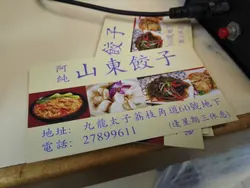 餃子
阿純
山東餃子
地址: 九龍太子荔枝角道60號地下
電話: 27899611
(逢星期三休息)